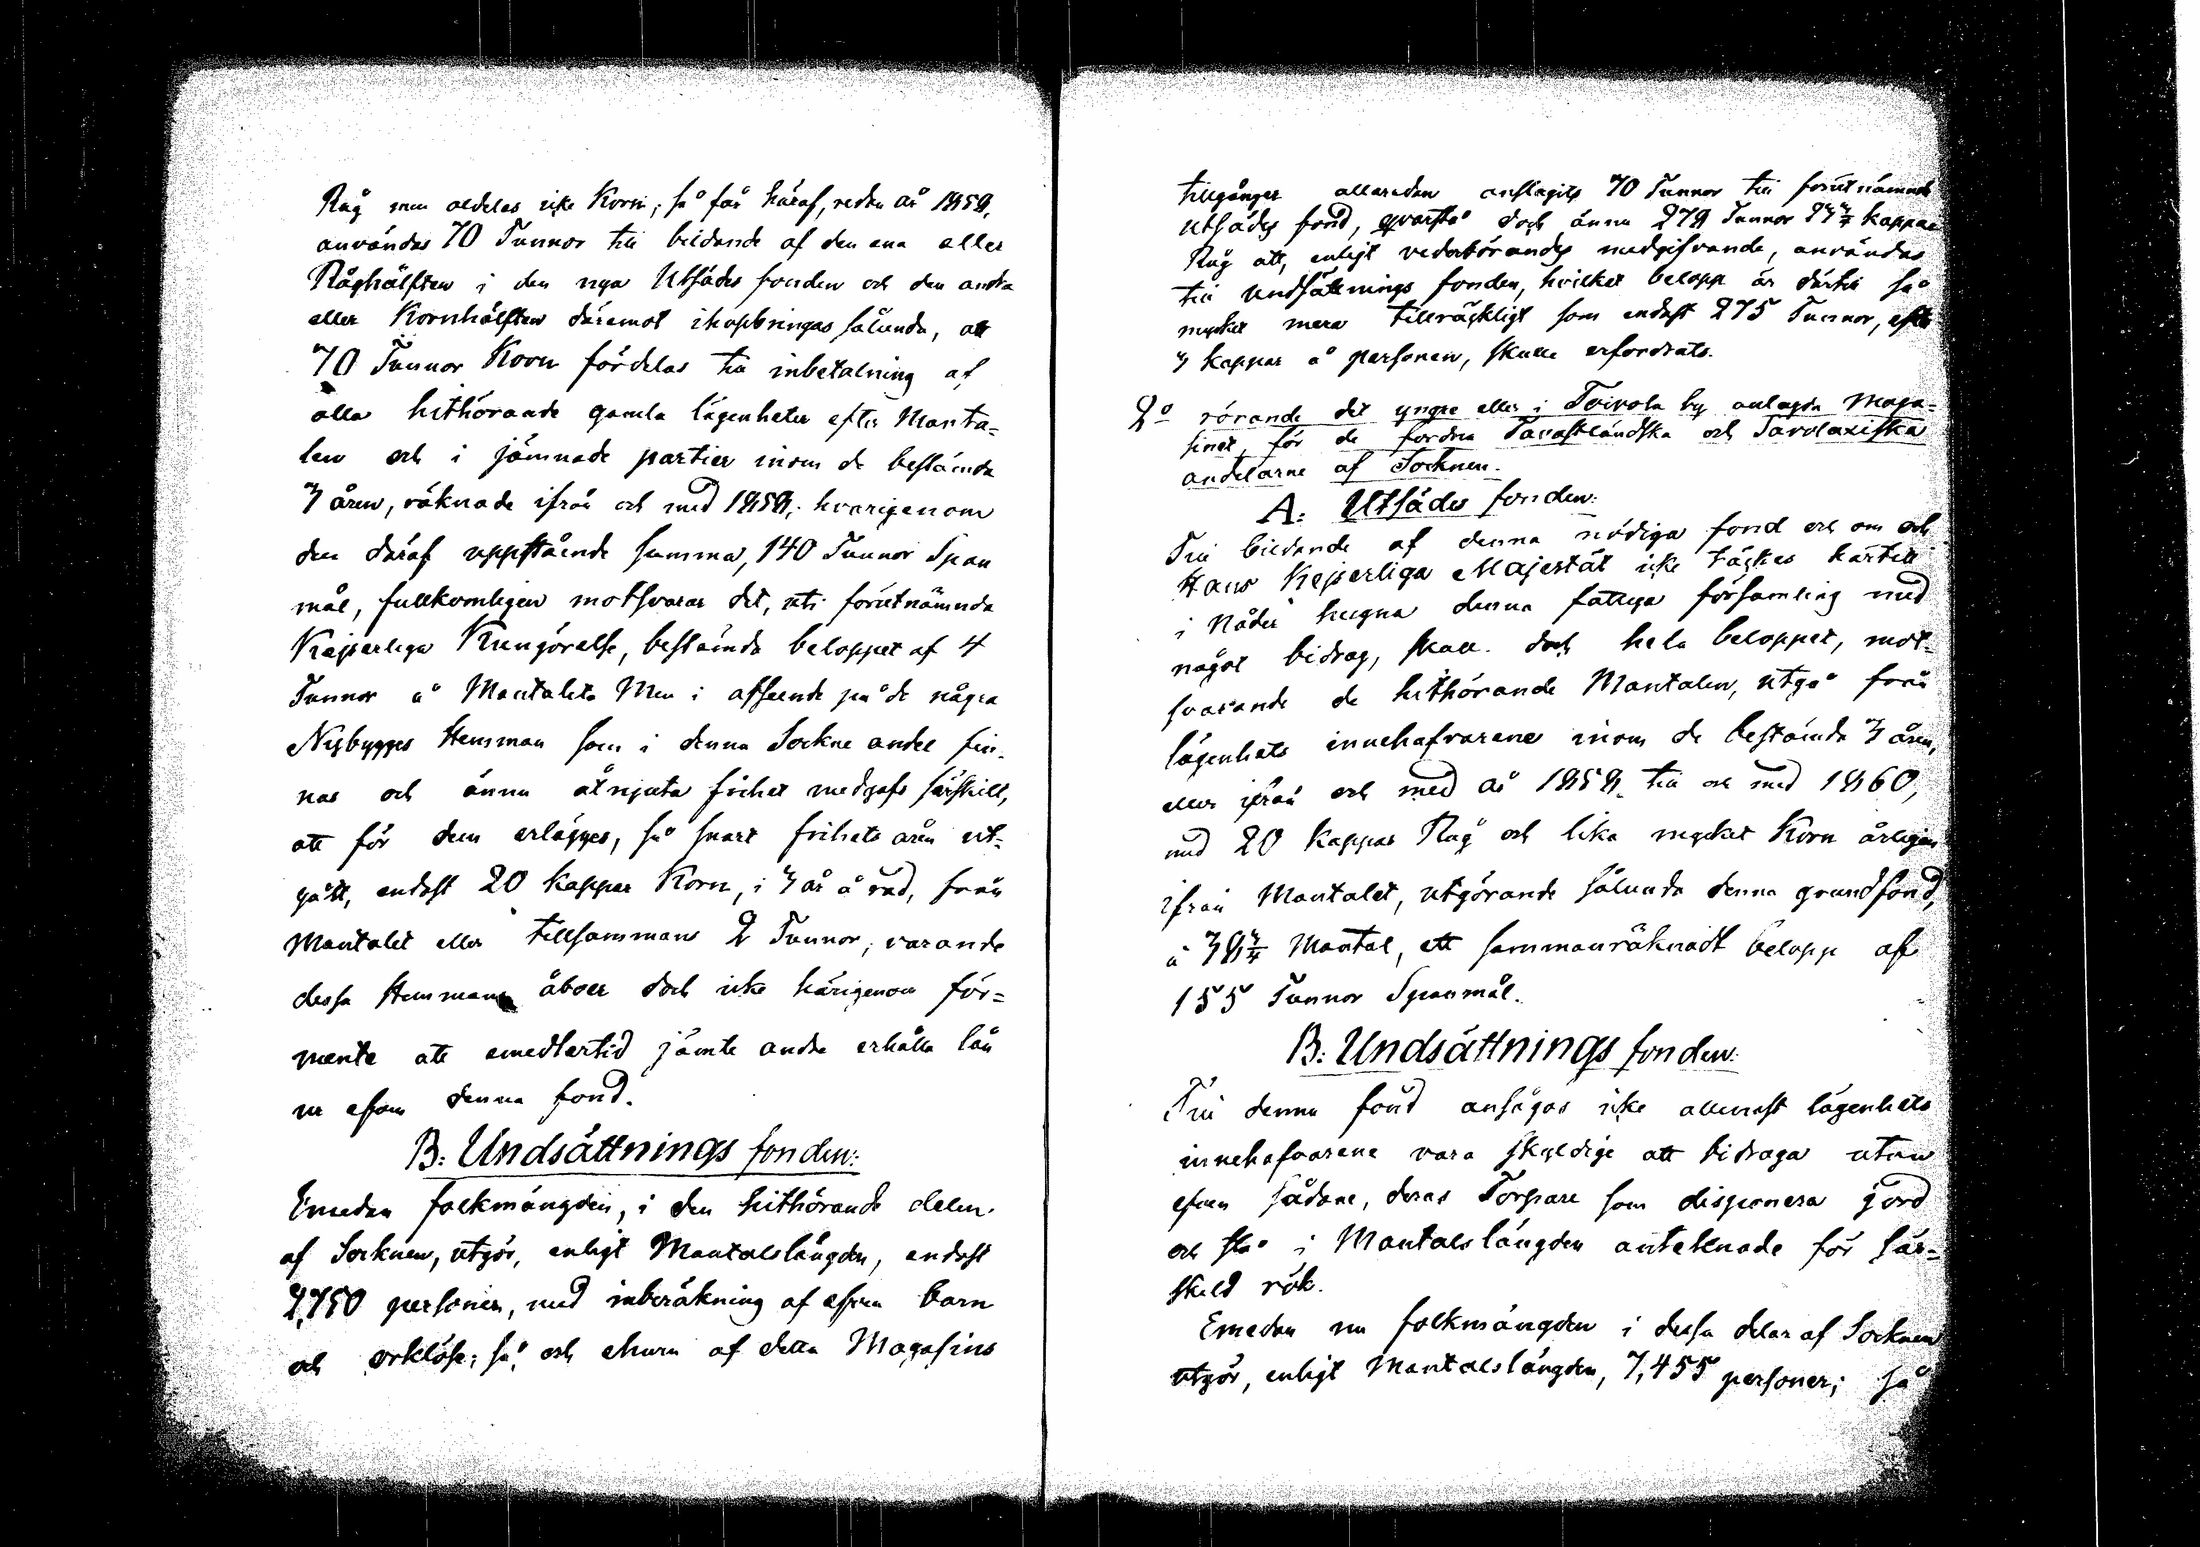 Råg men aldeles icke Korn; så får häraf, redan år 1858,
användas 70 Tunnor till bildande af den ena eller
Råghälften i den nya Utsädes fonden och den andra
eller Kornhälften däremot ihopbringas sålunda, att
70 Tunnor Korn fördelas till inbetalning af
alla hithörande gamla lägenheter efter Manta-
len och i jämnade partier inom de bestämda
3 åren, räknade ifrån och med 1858; hvarigenom
den däraf uppstående summa, 140 Tunnor Span
mål, fullkomligen motsvarar det, uti förutnämnda
Kejserliga Kungörelse, bestämda beloppet af 4
Tunnor å Mantalet. Men i afseende på de några
Nybygges Hemman som i denna Sockne andel fin-
nas och ännu åtnjuta frihet medgafs särskilt,
att för dem erlägges, så snart frihets åren ut-
gått, endast 20 kappar Korn, i 3 år å rad, från
Mantalet eller tillsammans 2 Tunnor, varande
dessa Hemmans åboer doch icke härigenom för-
mente att emedlertid jämte andra erhålla lån
ur äfven denna fond.
B: Undsättnings fonden:
Emedan folkmängden, i den hithörande delen
af Socknen, utgör, enligt Mantalslängden, endast
2,750 personer, med inberäkning af äfven barn
och orklöse; så, och ehuru af detta Magasins
tillgånger allaredan anslagits 70 Tunnor till förutnämnde
utsädes fond, qvarstå doch ännu 278 Tunnor kappar
Råg att, enligt vederbörandes medgifvande, användas
till Undsättnings fonden, hvilket belopp är därtill så
mycket mera tillräckligt som endast 275 Tunnor, efter
3 kappar å personen, skulle erfordrats.
2o rörande det yngre eller i Toivola by anlagda Maga-
sinet för de fordna Tavastländska och Savolaxiska
andelarne af Socknen.
A: Utsädes fonden:
Till bildande af denna nödiga fond och om och
Hans Kejserliga Majestät icke täckes härtill
i Nåder hugna denna fattiga församling med
något bidrag, skall doch hela beloppet, mot-
svarande de hithörande Mantalen, utgå från
lägenhets innehafvarene inom de bestämda 3 åren,
eller ifrån och med år 1858 till och med 1860,
med 20 kappar Råg och lika mycket Korn årligen
ifrån Mantalet, utgörande sålunda denna grundfond,
å 38 3/4 Mantal, ett sammanräknadt belopp af
155 Tunnor Spanmål.
B: Undsättnings fonden:
Till denna fond ansågos icke allenast lägenhets
innehafvarene vara skyldige att bidraga utan
äfven sådane, deras Torpare som disponera jord
och stå i Mantalslängden antecknade för sär-
skild rök.
Emedan nu folkmängden i dessa delar af Socknen
utgör, enligt Mantalslängden, 7,455 personer; så